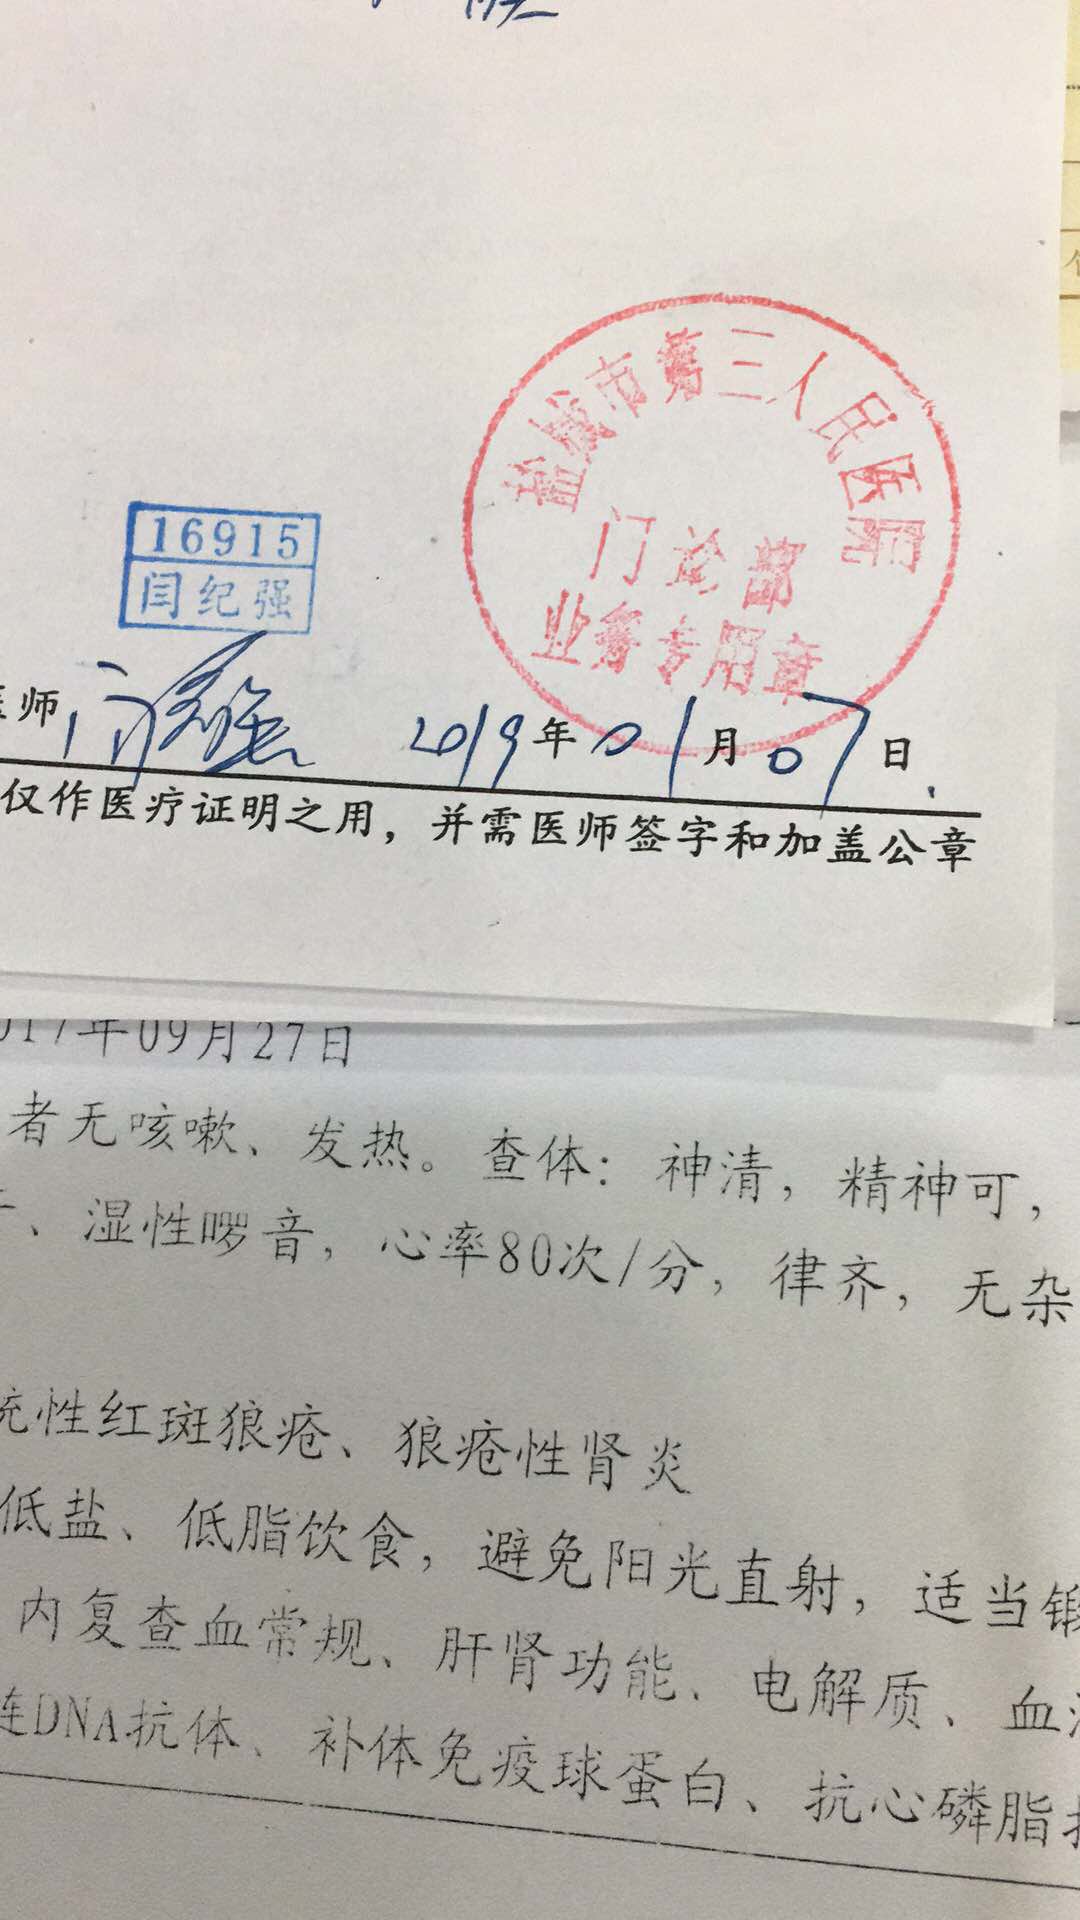 盐城市第三人民医院
门诊部
业务专用章
16915
闫纪强
医师 2019年01月07日.
仅作医疗证明之用，并需医师签字和加盖公章
017年09月27日
者无咳嗽、发热。查体：神清，精神可，
、湿性啰音，心率80次/分，律齐，无杂
统性红斑狼疮、狼疮性肾炎
低盐、低脂饮食，避免阳光直射，适当锻
内复查血常规、肝肾功能、电解质、血
链DNA抗体、补体免疫球蛋白、抗心磷脂抗